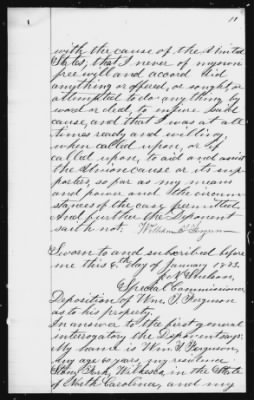 11
with the cause of the United
States; that I never of my own
free will and accord did
anything or offered, or sought, or
attempted to do anything by
word or deed, to injure said
cause, and that I was at all
times ready and willing,
when called upon, or if
called upon, to aid and assist
the Union cause or its sup-
porters, so far as my means
and power and the circum-
stances of the case permitted.
And further the Deponent
saith not. William T. Ferguson
Sworn to and subscribed before
me this 6 day of January 1873.
Special Commissioner
Deposition of Wm. T. Ferguson
as to his property.
In answer to the first general
interrogatory the Deponent says:
My name is Wm. T. Ferguson,
my age 60 years, my residence,
Wilkes Co. in the State
of North Carolina, and my